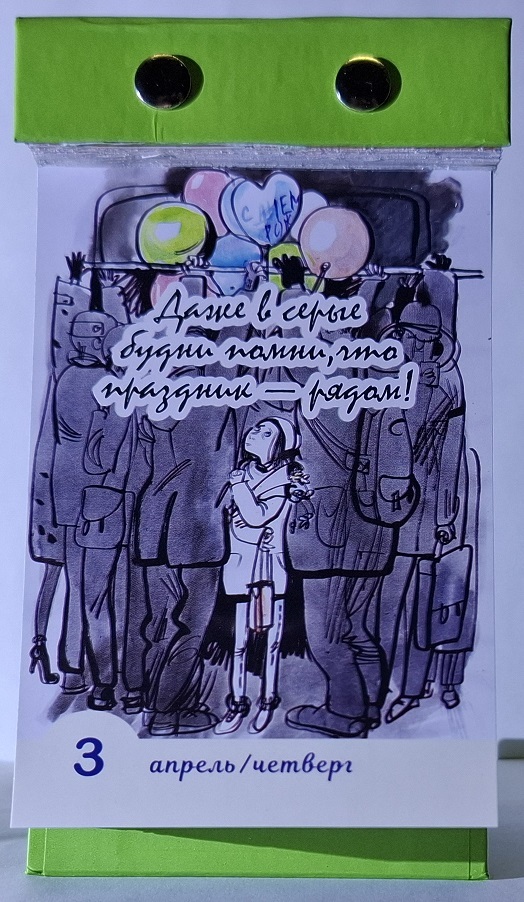 С ДНЕМ
РОЖ
Даже в серые
будни помни, что
праздник — рядом!
3
апрель/четверг